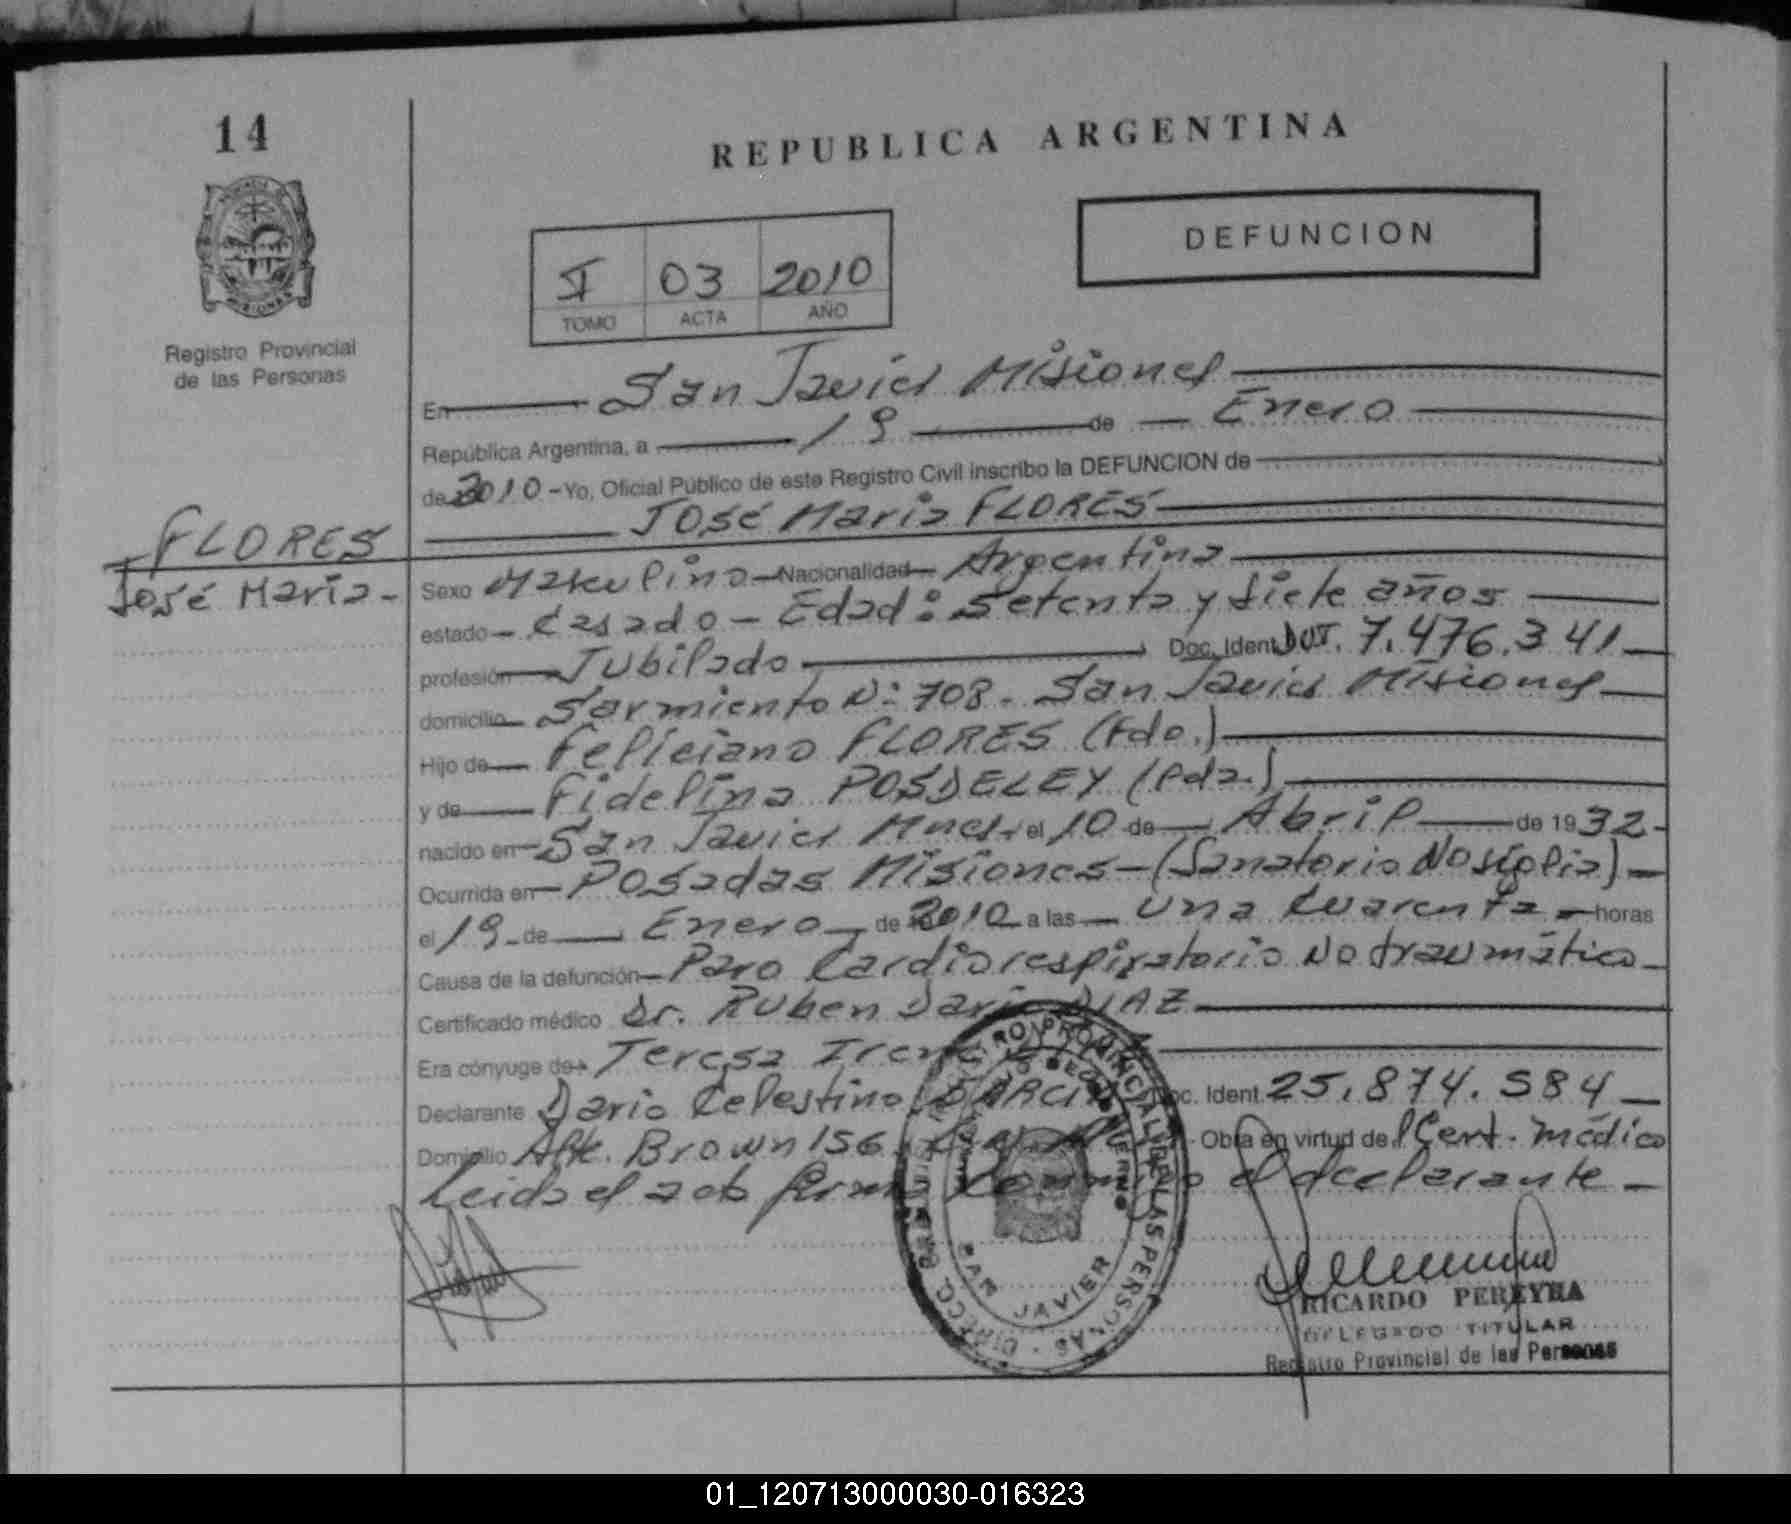 14
REPUBLICA ARGENTINA
DEFUNCION
I 03 2010
TOMO ACTA AÑO
Registro Provincial
de las Personas
En San Javier Misiones
República Argentina, a 19 de Enero
de 2010 - Yo, Oficial Público de este Registro Civil inscribo la DEFUNCION de
José Maria FLORES
FLORES
José Maria -
Sexo Masculino Nacionalidad Argentina
estado - Casado - Edad: Setenta y Siete años
profesión Jubilado Doc. Ident. 7.476.341
domicilio Sarmiento Nº 708. San Javier Misiones
Hijo de Feliciano FLORES (Fdo.)
y de Fidelina POSDELEY (Fda.)
nacido en San Javier Mnes. el 10 de Abril de 1932 -
Ocurrida en Posadas Misiones - (Sanatorio Nosiglia) -
el 19 de Enero de 2010 a las Una Cuarenta horas
Causa de la defunción Paro Cardiorespiratorio No traumático
Certificado médico Dr. Ruben Dario DIAZ
Era cónyuge de Teresa Irene
Declarante Dario Celestino GARCIA Doc. Ident. 25.874.584
Domicilio Alte. Brown 156 Obra en virtud de Cert. médico
Leida el acta firma conmigo el declarante -
REGISTRO PROVINCIAL DE LAS PERSONAS - DIRECC.
SAN JAVIER
RICARDO PEREYRA
DELEGADO TITULAR
Registro Provincial de las Personas
01_120713000030-016323